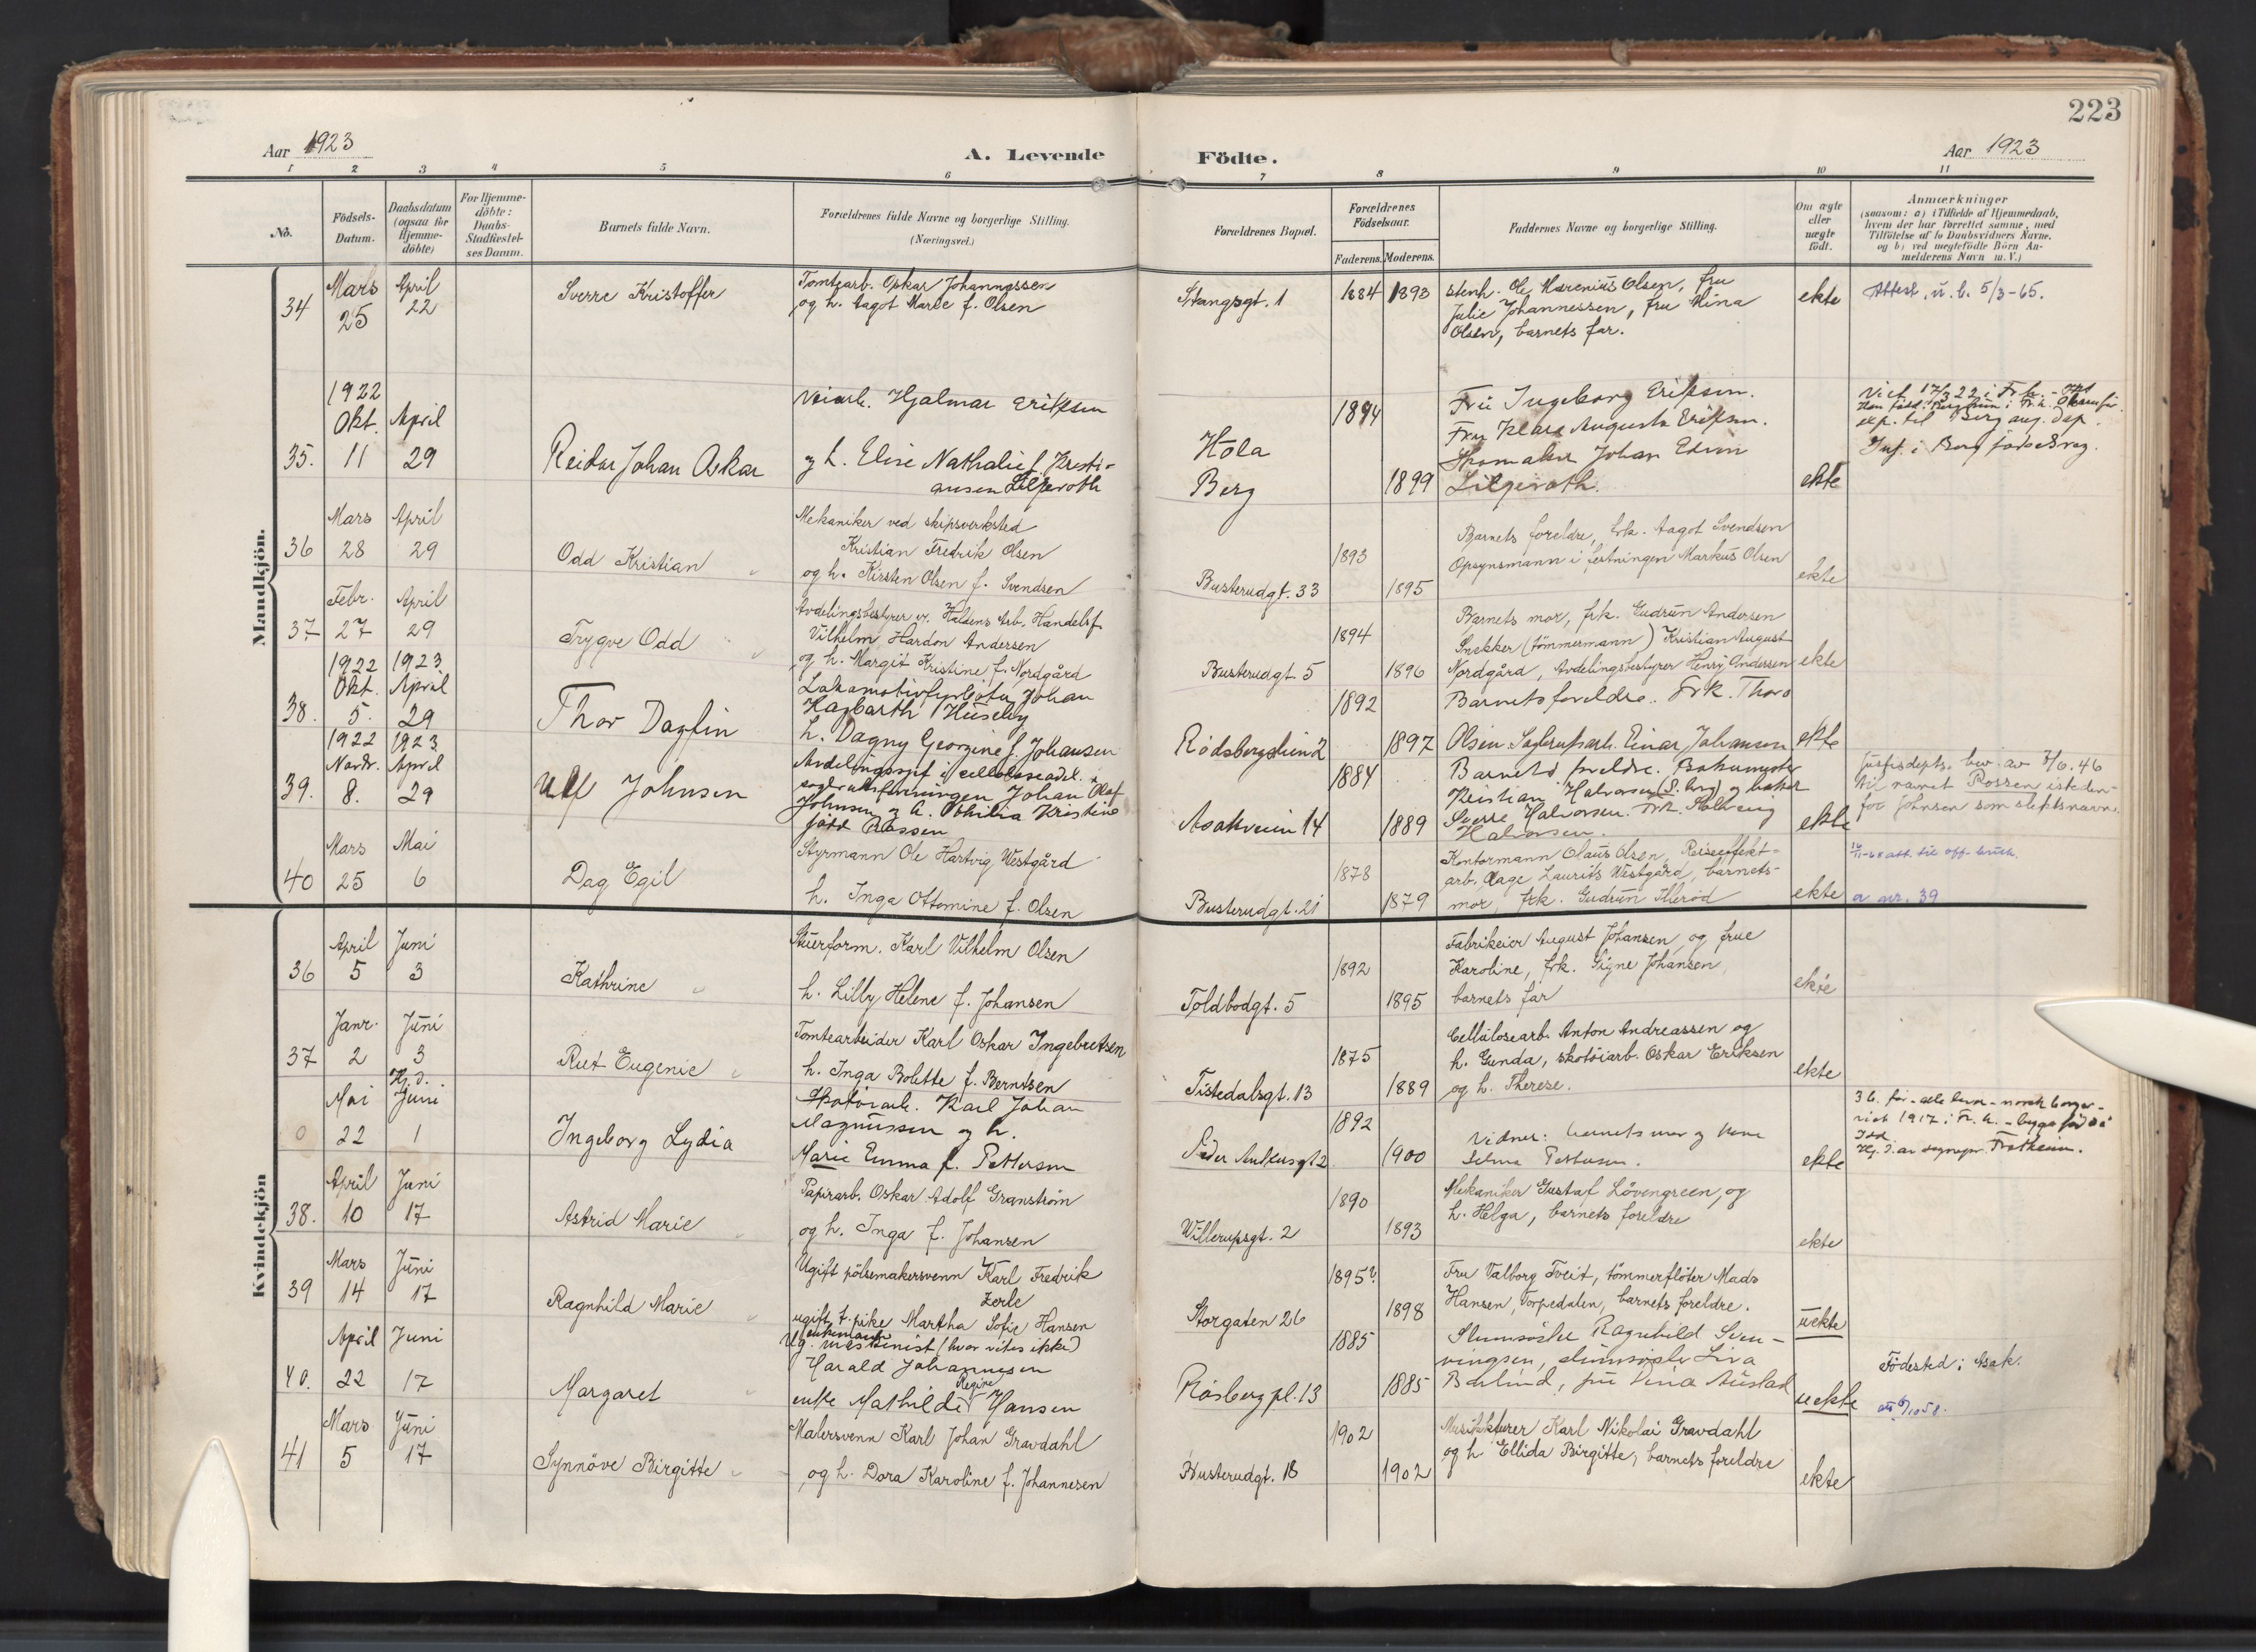 223
Aar 1923
A. Levende
Födte.
Aar 1923
1 2 3 4 5 6 7 8 9 10 11
No.
Födsels-
Datum.
Daabsdatum
(ogsaa for
Hjemme-
döbte)
For Hjemme-
döbte:
Daabs-
Stadfæstel-
ses Datum.
Barnets fulde Navn.
Forældrenes fulde Navne og borgerlige Stilling.
(Næringsvei.)
Forældrenes Bopæl.
Forældrenes
Födselsaar.
Faderens.
Moderens.
Faddernes Navne og borgerlige Stilling.
Om ægte
eller
uægte
födt.
Anmærkninger
(saasom: a) i Tilfælde af Hjemmedaab,
hvem der har forrettet samme, med
Tilföielse af to Daabsvidners Navne,
og b) ved uægtefödte Börn An-
melderens Navn m.V.)
Mandkjön.
34
Mars
25
April
22
Sverre Kristoffer
Tomtearb. Oskar Johannessen
og h. Aagot Marie f. Olsen
Stangsgt. 1
1884
1893
Stenh. Ole Marenius Olsen, fru
Julie Johannessen, fru Mina
Olsen, barnets far.
ekte
Attest. u. b. 5/3-65.
35.
1922
Okt.
11
April
29
Reidar Johan Oskar
Veiarb. Hjalmar Eriksen
og h. Elise Nathalie f. Kristi-
ansen Liljeroth
Hola
Berg
1894
1899
Fru Ingeborg Eriksen.
Fru Klara Augusta Eriksen.
Skomaker Johan Edvin
Liljeroth.
ekte
Viet 17/3 22 i Fr.h. -
exp. til Berg ang. dåp.
Inf. i Berg fødselsreg.
36
Mars
28
April
29
Odd Kristian
Mekaniker ved skipsverksted
Kristian Fredrik Olsen
og h. Kirsten Olsen f. Svendsen
Busterudgt. 33
1893
1895
Barnets foreldre, frk. Aagot Svendsen
Opsynsmann i festningen Markus Olsen
ekte
37
Febr.
27
April
29
Trygve Odd
Avdelingsbestyrer v. Haldens Arb. Handelsf.
Vilhelm Hardon Andersen
og h. Margit Kristine f. Nordgård
Busterudgt. 5
1894
1896
Barnets mor, frk. Gudrun Andersen
Snekker (tömmermann) Kristian August
Nordgård, Avdelingsbestyrer Henry Andersen
ekte
38.
1922
Okt.
5.
1923
April
29
Thor Dagfin
Lokomotivfyrböter Johan
Hagbarth Huseby
h. Dagny Georgine f. Johansen
Rødsbergsveien 2
1892
1897
Barnets foreldre. Frk. Thora
Olsen. Sagbruksarb. Einar Johansen
ekte
39.
1922
Novbr.
8.
1923
April
29
Ulf Johnsen
Avdelingssjef i celluloseavdel.
Johan Olaf
Johnsen og h. Othilia Kristine
född Rossen
Asakveien 14
1884
1889
Barnets foreldre.
Kristian Halvorsen (S.borg) og
Sverre Halvorsen. Frk. Solveig
Halvorsen.
ekte
Justisdepts. bev. av 7/6.46
til navnet Rossen isteden-
for Johnsen som slektsnavn.
16/11-61 att. til off. bruk.
40
Mars
25
Mai
6
Dag Egil
Styrmann Ole Hartvig Westgård
h. Inga Ottomine f. Olsen
Busterudgt. 21
1878
1879
Kontormann Olaus Olsen, Reiseeffekt-
arb. Aage Laurits Westgård, barnets-
mor, frk. Gudrun Skeröd
ekte
a nr. 39
Kvindekjön
36
April
5
Juni
3
Kathrine
Stuerform. Karl Vilhelm Olsen
h. Lilly Helene f. Johansen
Toldbodgt. 5
1892
1895
Fabrikeier August Johansen, og frue
Karoline, frk. Signe Johansen,
barnets far
ekte
37
Janr.
2
Juni
3
Rut Eugenie
Tomtearbeider Karl Oskar Ingebretsen
h. Inga Bolette f. Berntsen
Tistedalsgt. 13
1875
1889
Cellulosearb. Anton Andreassen og
h. Gunda, skotöiarb. Oskar Eriksen
og h. Therese.
ekte
0
Mai
22
Hj.d.
Juni
1
Ingeborg Lydia
Skotöiarb. Karl Johan
Magnussen og h.
Marie Emma f. Pettersen
Peder Ankersgt 2
1892
1900
Vidner: barnets mor og
Selma Pettersen.
ekte
3 b. før - alle lever - norsk borger -
viet 1917 i Fr. h. - begge född i
Idd
Hj. d. av sognepr. Trætheim.
38.
April
10
Juni
17
Astrid Marie
Papirarb. Oskar Adolf Granström
og h. Inga f. Johansen
Willerupsgt. 2
1890
1893
Mekaniker Gustaf Lövengreen, og
h. Helga, barnets foreldre
ekte
39
Mars
14
Juni
17
Ragnhild Marie
Ugift pölsemakersvenn Karl Fredrik
Zerle
ugift t. pike Martha Sofie Hansen
Storgaten 26
1895?
1898
Fru Valborg Tveit, tömmerflöter Mads
Hansen, Torpedalen, barnets foreldre.
uekte
40.
April
22
Juni
17
Margaret
enkemann
Ug. maskinist (hvor vites ikke)
Harald Johannesen
enke Mathilde Regine Hansen
Rösberg pl. 13
1885
1885
Slumsöster Ragnhild Sven-
ningsen, slumsöster Liva
Barlind, fru Dina Austad
uekte
Födested: Asak.
att 6/10 58.
41
Mars
5
Juni
17
Synnöve Birgitte
Malersvenn Karl Johan Gravdahl
og h. Dora Karoline f. Johannesen
Busterudgt. 18
1902
1902
Musiklærer Karl Nikolai Gravdahl
og h. Ellida Birgitte, barnets foreldre
ekte